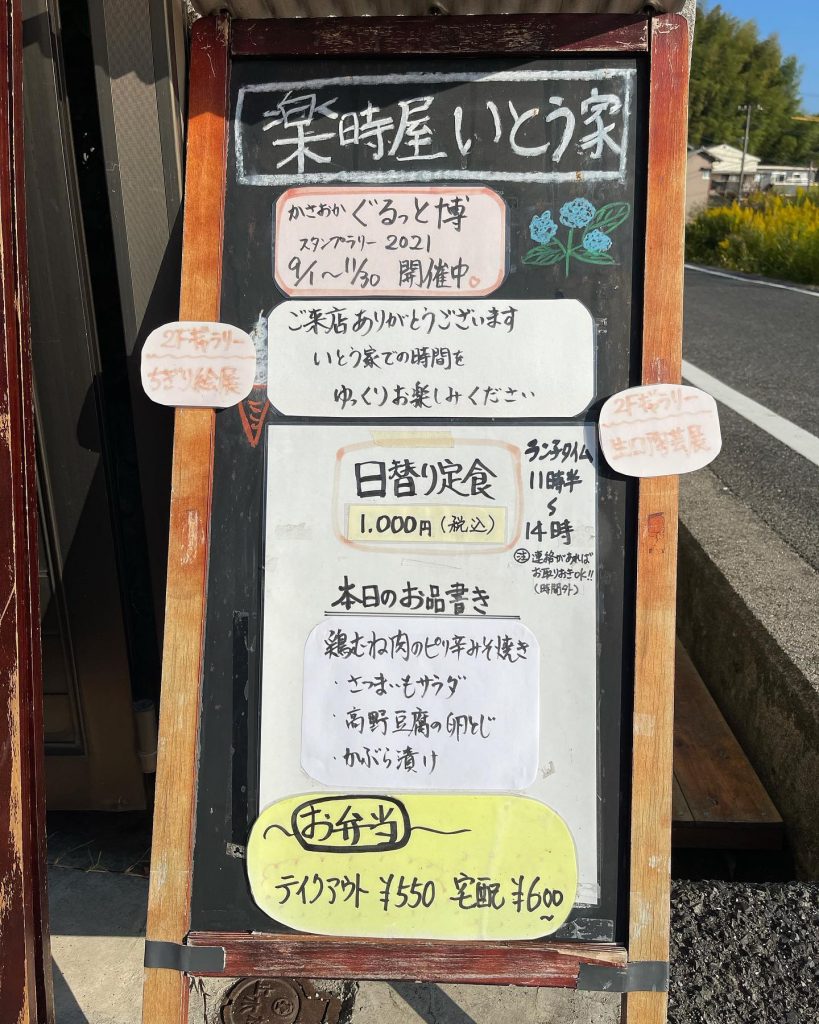 楽時屋 いとう家
かさおか ぐるっと博
スタンプラリー 2021
9/1〜11/30 開催中。
ご来店ありがとうございます
いとう家での時間を
ゆっくりお楽しみください
2Fギャラリー
ちぎり絵展
2Fギャラリー
陶芸展
日替り定食
1.000円(税込)
ランチタイム
11時半
〜
14時
注 連絡があれば
お取りおきOK!!
(時間外)
本日のお品書き
鶏むね肉のピリ辛みそ焼き
・さつまいもサラダ
・高野豆腐の卵とじ
・かぶら漬け
〜お弁当〜
テイクアウト ¥550 宅配 ¥600〜